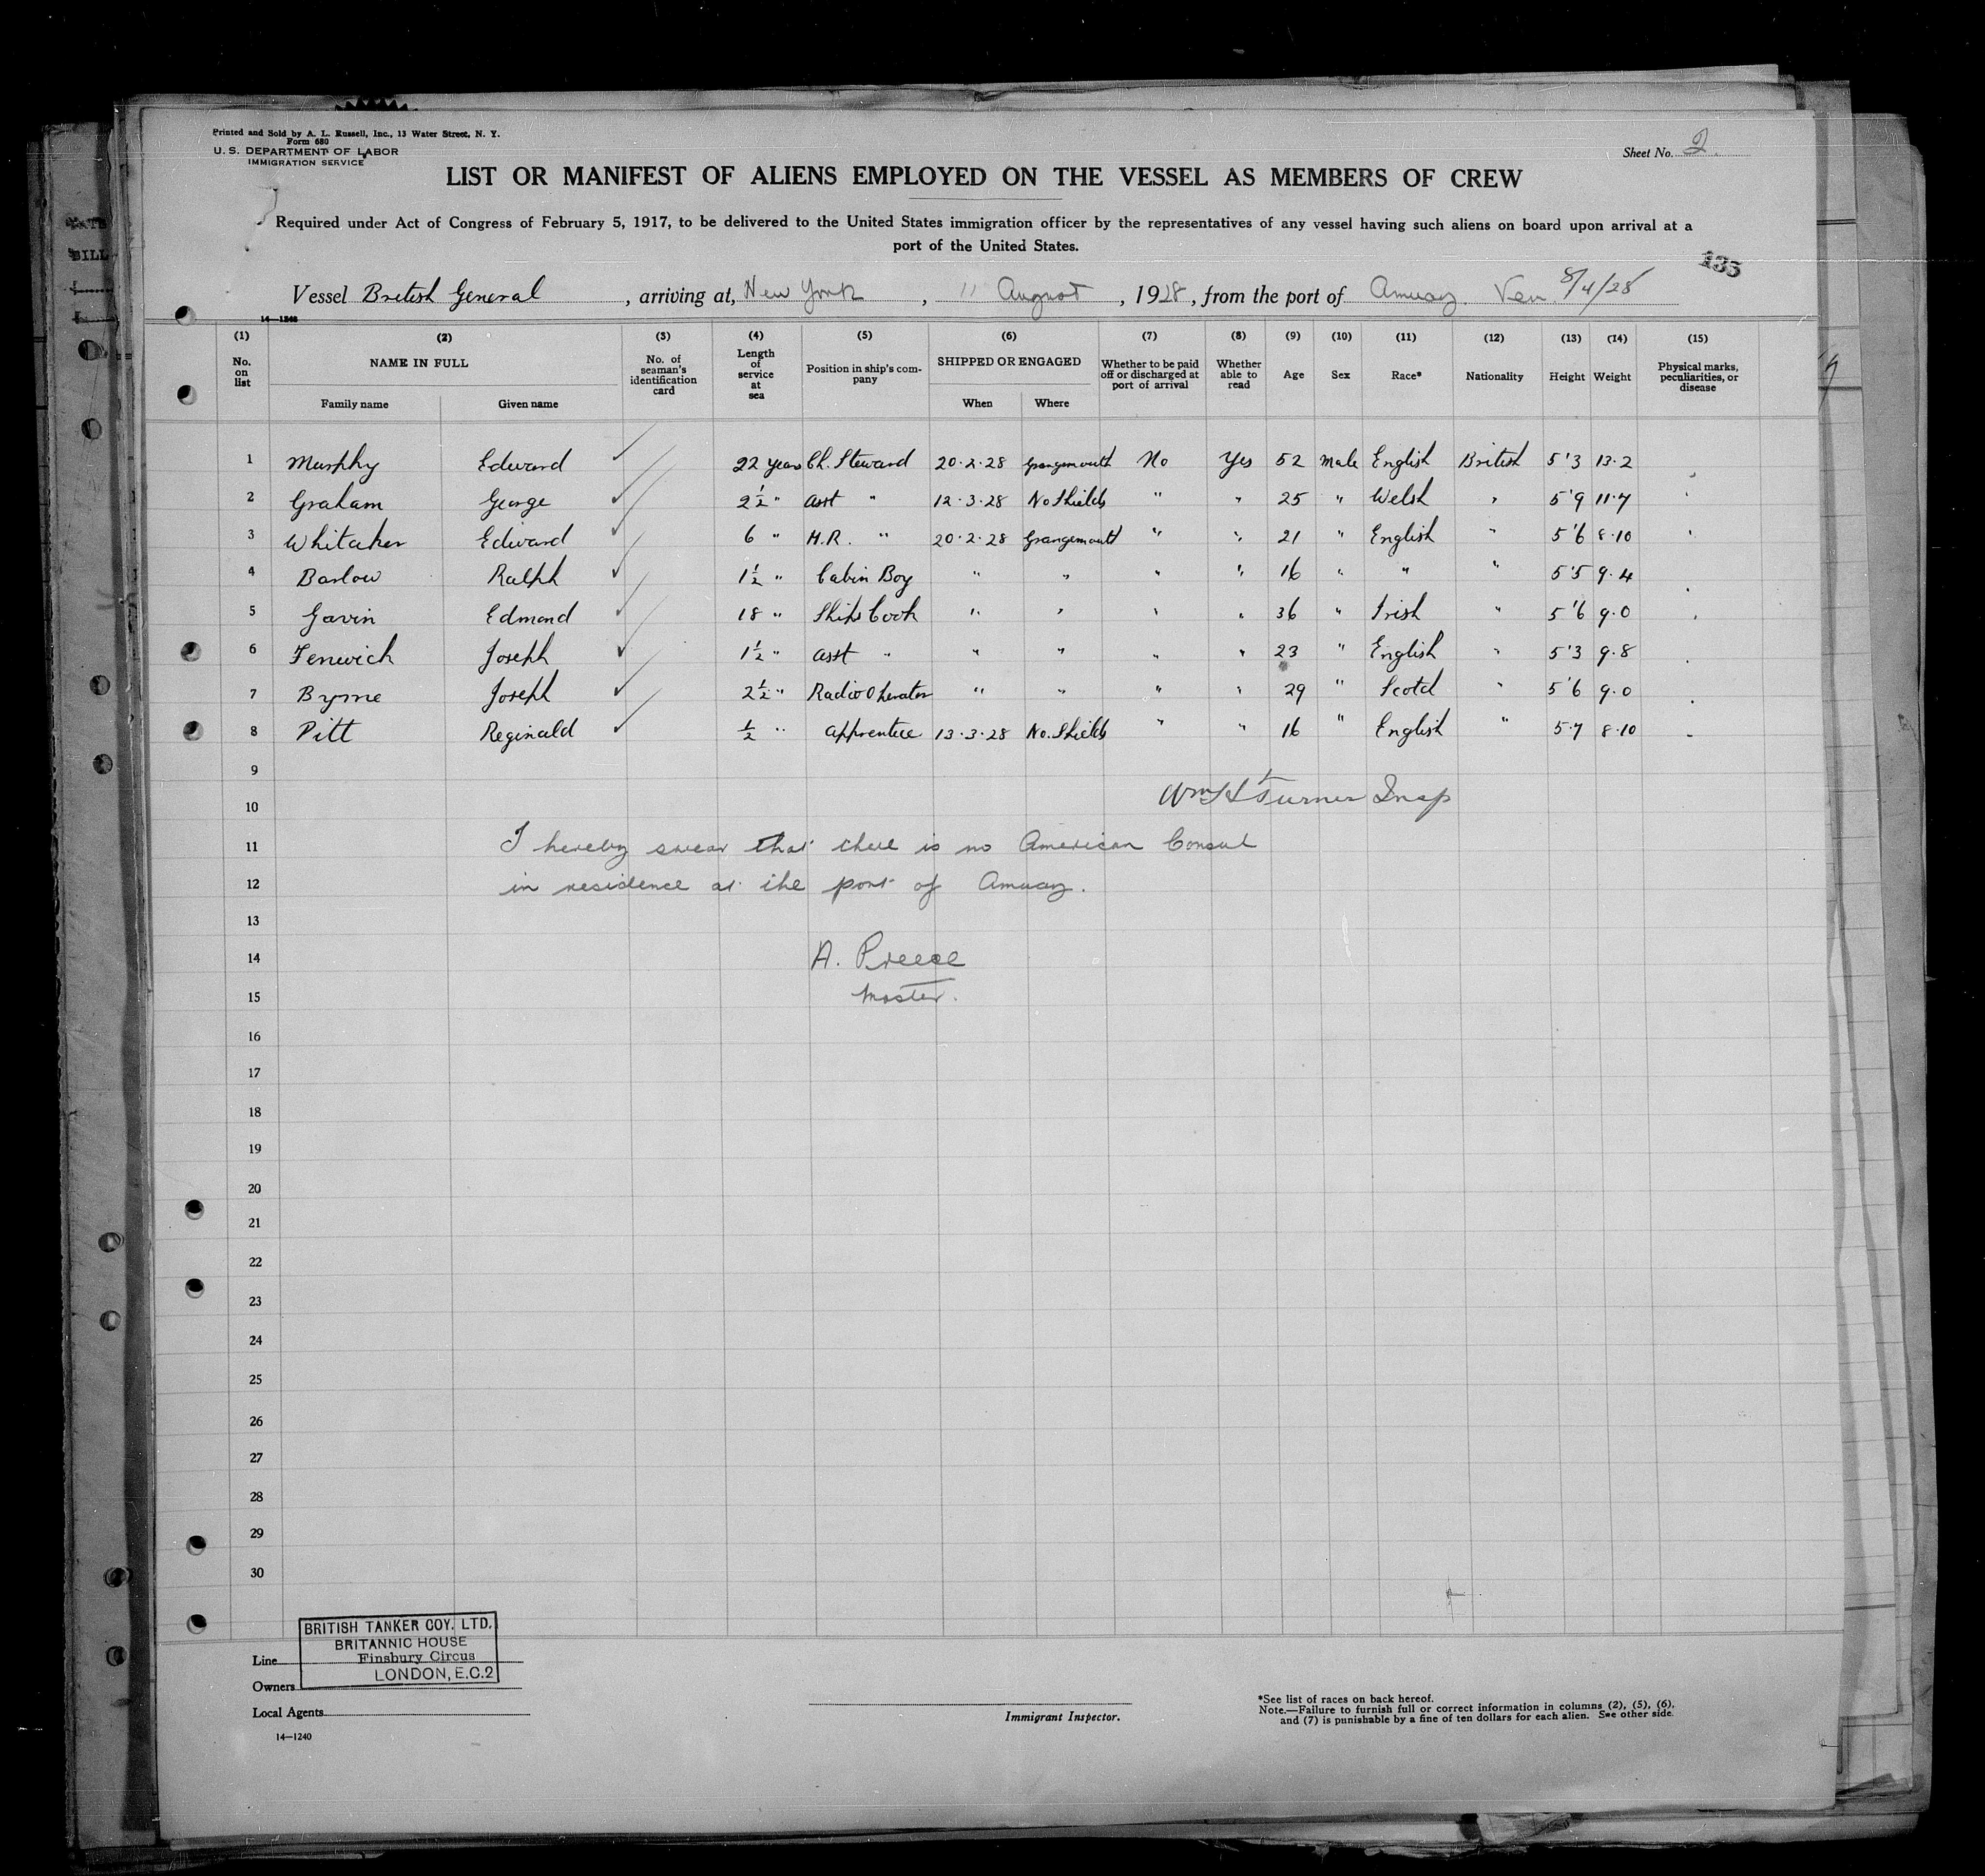 Printed and Sold by A. L. Russell, Inc., 13 Water Street, N. Y.
Form 680
U. S. DEPARTMENT OF LABOR
IMMIGRATION SERVICE
Sheet No. 2.
LIST OR MANIFEST OF ALIENS EMPLOYED ON THE VESSEL AS MEMBERS OF CREW
Required under Act of Congress of February 5, 1917, to be delivered to the United States immigration officer by the representatives of any vessel having such aliens on board upon arrival at a
port of the United States.
135
Vessel British General, arriving at, New York, 11 August, 1928, from the port of Amuay. Ven. 8/4/28
14—1240
(1) (2) (3) (4) (5) (6) (7) (8) (9) (10) (11) (12) (13) (14) (15)
No. on list NAME IN FULL No. of seaman's identification card Length of service at sea Position in ship's company SHIPPED OR ENGAGED Whether to be paid off or discharged at port of arrival Whether able to read Age Sex Race* Nationality Height Weight Physical marks, peculiarities, or disease
Family name Given name When Where
1 Murphy Edward 22 years Ch. Steward 20.2.28 Grangemouth No Yes 52 Male English British 5'3 13.2
2 Graham George 2½ " Asst " 12.3.28 No Shields " " 25 " Welsh " 5'9 11.7
3 Whitaker Edward 6 " M.R. " 20.2.28 Grangemouth " " 21 " English " 5'6 8.10
4 Barlow Ralph 1½ " Cabin Boy " " " " 16 " " " 5'5 9.4
5 Gavin Edmond 18 " Ships Cook " " " " 36 " Irish " 5'6 9.0
6 Fenwick Joseph 1½ " Asst " " " " " 23 " English " 5'3 9.8
7 Byrne Joseph 2½ " Radio Operator " " " " 29 " Scotch " 5'6 9.0
8 Pitt Reginald ½ " Apprentice 13.3.28 No. Shields " " 16 " English " 5.7 8.10
9
Wm H Turner Insp
10
11 I hereby swear that there is no American Consul
12 in residence at the port of Amuay.
13
14 A. Preece
15 Master.
16
17
18
19
20
21
22
23
24
25
26
27
28
29
30
BRITISH TANKER COY. LTD.
BRITANNIC HOUSE
Finsbury Circus
LONDON, E.C.2
Line
Owners
Local Agents
Immigrant Inspector.
*See list of races on back hereof.
Note.—Failure to furnish full or correct information in columns (2), (5), (6),
and (7) is punishable by a fine of ten dollars for each alien. See other side.
14—1240